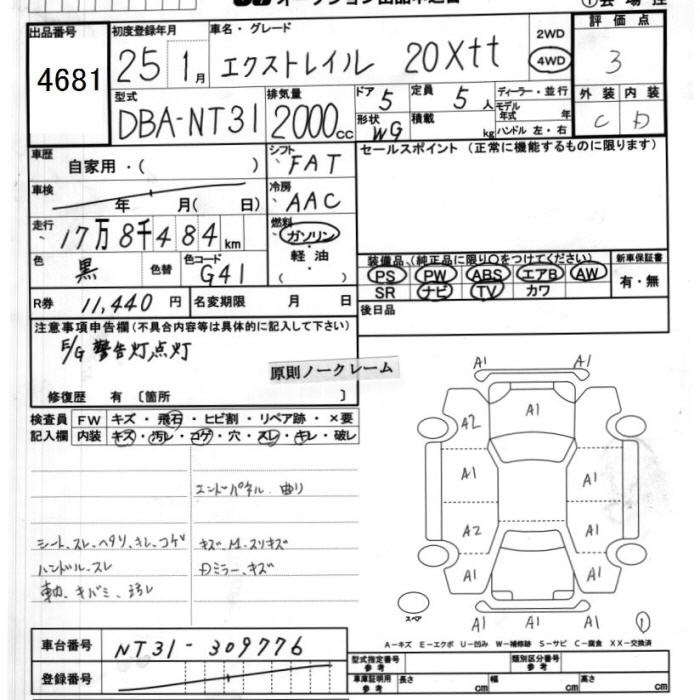 出品番号
4681
初度登録年月
25 1月
車名・グレード
エクストレイル 20Xtt
2WD
4WD
評価点
3
型式
DBA-NT31
排気量
2000cc
ドア 5
定員 5人
形状 WG
積載 kg
ディーラー・並行
モデル年式 年
ハンドル 左・右
外装 内装
C D
車歴 自家用・( )
シフト FAT
セールスポイント (正常に機能するものに限ります)
車検 年 月( 日)
冷房 AAC
走行 17万8千484km
燃料 ガソリン・軽油・( )
色 黒 色替 色コード G41
装備品 (純正品に限り○をつけてください)
新車保証書
PS PW ABS エアB AW
有・無
SR ナビ TV カワ
R券 11,440円
名変期限 月 日
後日品
注意事項申告欄(不具合内容等は具体的に記入して下さい)
E/G 警告灯点灯
原則ノークレーム
修復歴 有 〔箇所 〕
検査員 FW キズ・飛石・ヒビ割・リペア跡・×要
記入欄 内装 キズ・汚レ・コゲ・穴・スレ・キレ・破レ
エンドパネル 曲リ
シート、スレ、ヘタリ、キレ、コゲ
キズ、M-スリキズ
ハンドル、スレ
Dミラー、キズ
キバミ、汚レ
A1 A1
A1
A2
A1 A1
A2 A1
A1 A1
A1 A1 A1
スペア
1
A-キズ E-エクボ U-凹み W-補修跡 S-サビ C-腐食 XX-交換済
車台番号 NT31-309776
型式指定番号 参考
類別区分番号 参考
登録番号
車庫証明用 参考
長さ cm
幅 cm
高さ cm